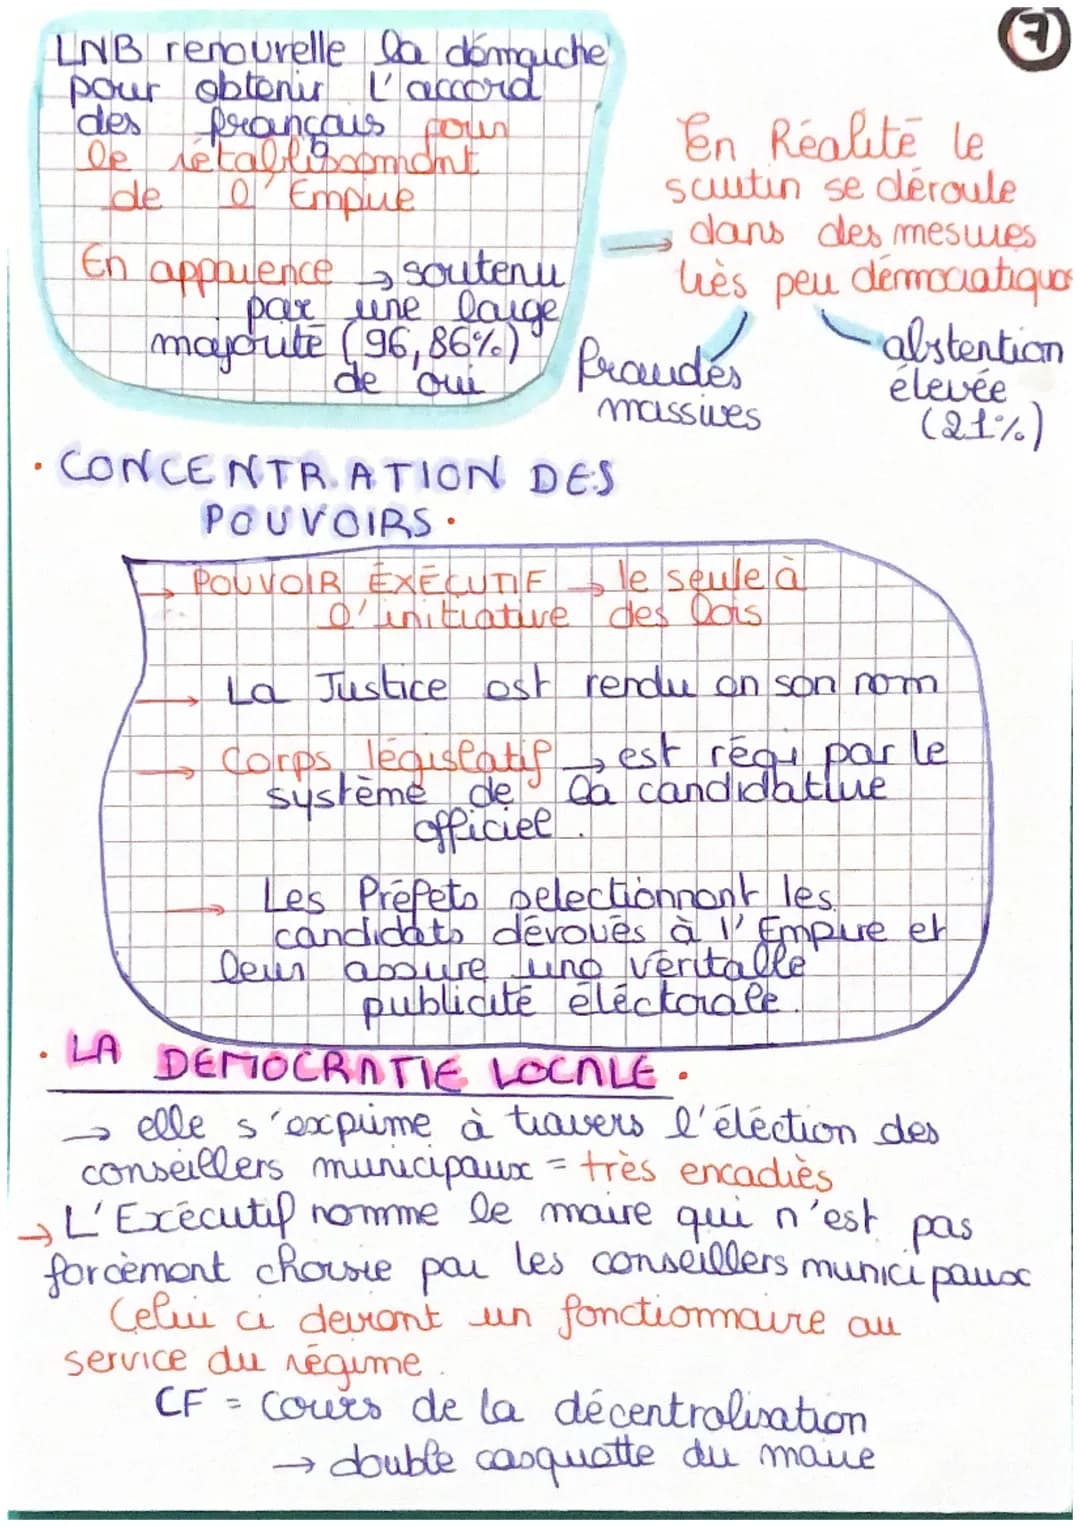 7
LNB renouvelle la démarche
pour obtenir l'accord
des français pour
le rétablissement
de l'Empire
En apparence → soutenu
par une large
majorité (96,86%)
de oui
→ En Réalité le
scrutin se déroule
dans des mesures
très peu démocratiques
fraudes
massives
abstention
élevée
(21%)
• CONCENTRATION DES
POUVOIRS •
→ POUVOIR ÉXÉCUTIF → le seule à
l'initiative des lois
→ La Justice est rendu en son nom
→ Corps législatif → est régi par le
système de la candidature
officiel.
→ Les Préfets selectionnent les
candidats dévoués à l'Empire et
leur assure une véritable
publicité éléctorale.
• LA DEMOCRATIE LOCALE •
→ elle s'exprime à travers l'éléction des
conseillers municipaux = très encadrés
→ L'Exécutif nomme le maire qui n'est pas
forcèment choisie par les conseillers municipaux
Celui ci devient un fonctionnaire au
service du régime.
CF = cours de la décentralisation
→ double casquette du maire